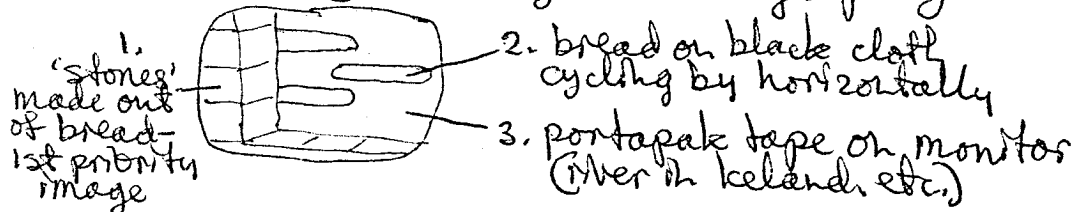 1.
'stones'
made out
of bread-
1st priority
image
2. bread on black cloth
cycling by horizontally
3. portapak tape on monitor
(river in Iceland, etc.)